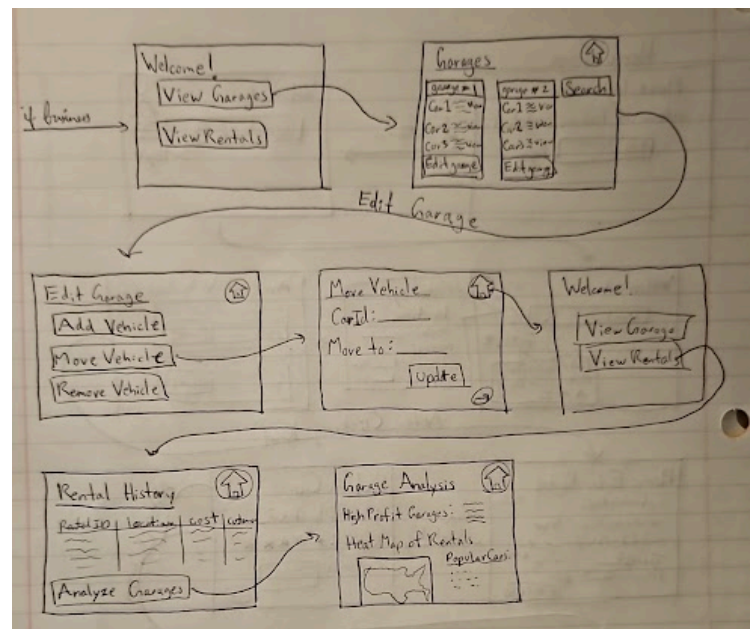 if business
Welcome!
View Garages
View Rentals
Garages
garage #1
Car1 view
Car2 view
Car3 view
Edit garage
garage #2
Car1 view
Car2 view
Car3 view
Edit garage
Search
Edit Garage
Edit Garage
Add Vehicle
Move Vehicle
Remove Vehicle
Move Vehicle
CarId:
Move to:
Update
Welcome!
View Garage
View Rentals
Rental History
RentalID location cost
Analyze Garages
Garage Analysis
High Profit Garages:
Heat Map of Rentals
Popular Cars: